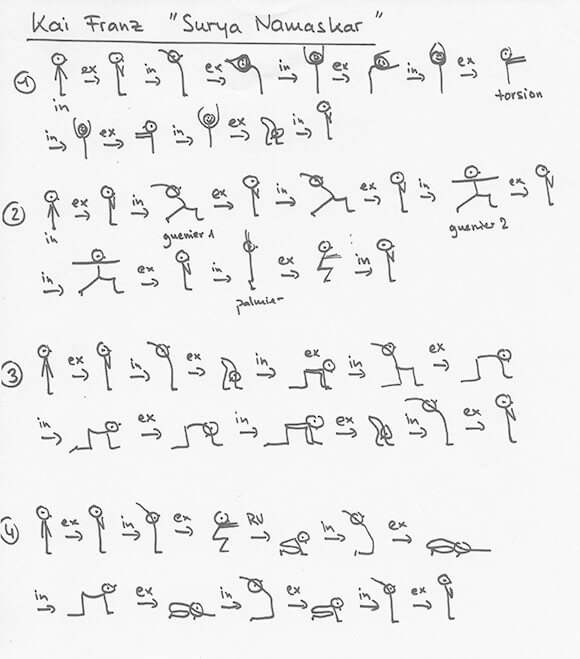 Kai Franz "Surya Namaskar"
1 ex in ex in ex in ex
in torsion
in ex in ex in
2 ex in ex in ex in ex
in guerrier 1 guerrier 2
in ex in ex in
palmier
3 ex in ex in ex in ex
in ex in ex in ex
4 ex in ex RV in ex
in ex in ex in ex